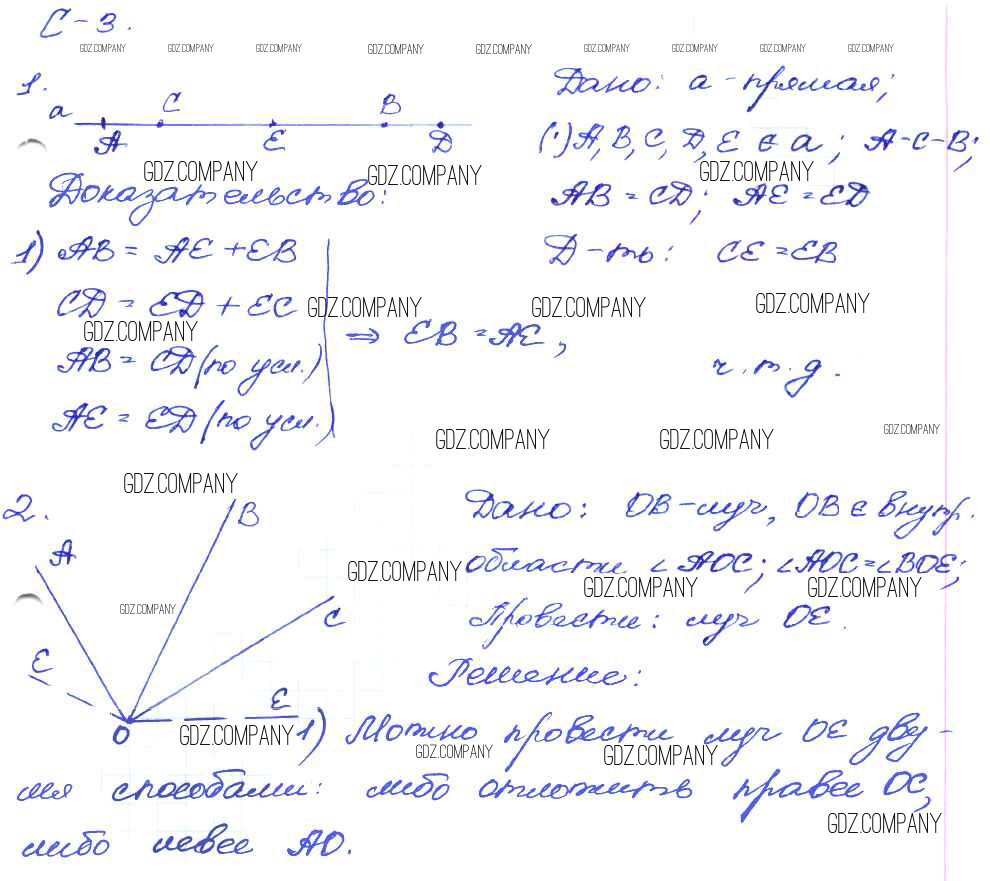 С-3.
GDZ.COMPANY GDZ.COMPANY GDZ.COMPANY GDZ.COMPANY GDZ.COMPANY GDZ.COMPANY GDZ.COMPANY GDZ.COMPANY GDZ.COMPANY
1.
a A C E B D
Дано: a - прямая;
(·) A, B, C, D, E ∈ a; A-C-B;
GDZ.COMPANY GDZ.COMPANY GDZ.COMPANY
AB = CD; AE = ED
Д-ть: CE = EB
Доказательство:
1) AB = AE + EB
CD = ED + EC
GDZ.COMPANY GDZ.COMPANY GDZ.COMPANY
GDZ.COMPANY
AB = CD (по усл.)
AE = ED (по усл.)
⇒ EB = AE,
ч.т.д.
GDZ.COMPANY GDZ.COMPANY GDZ.COMPANY
GDZ.COMPANY
2.
A B C E O E
Дано: OB - луч, OB ∈ внутр.
области ∠AOC; ∠AOC = ∠BOE;
GDZ.COMPANY GDZ.COMPANY GDZ.COMPANY
GDZ.COMPANY
Провести: луч OE.
Решение:
1) Можно провести луч OE дву-
GDZ.COMPANY GDZ.COMPANY GDZ.COMPANY
мя способами: либо отложить правее OC,
GDZ.COMPANY
либо левее AO.